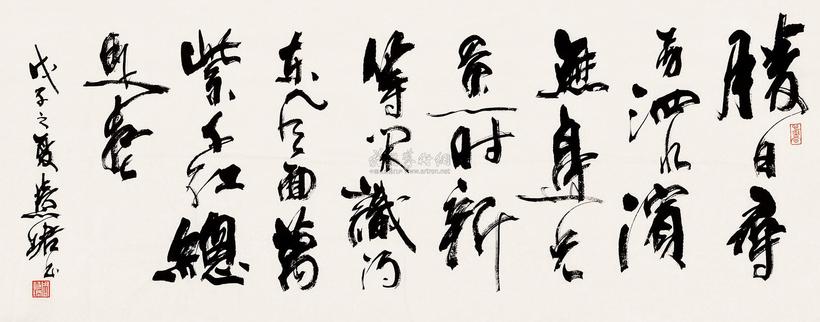 勝日尋
芳泗水濱
無邊光
景一時新
等閒識得
東風面萬
紫千紅總
是春
戊子之夏慧珺书
雅昌藝術網
www.artron.net